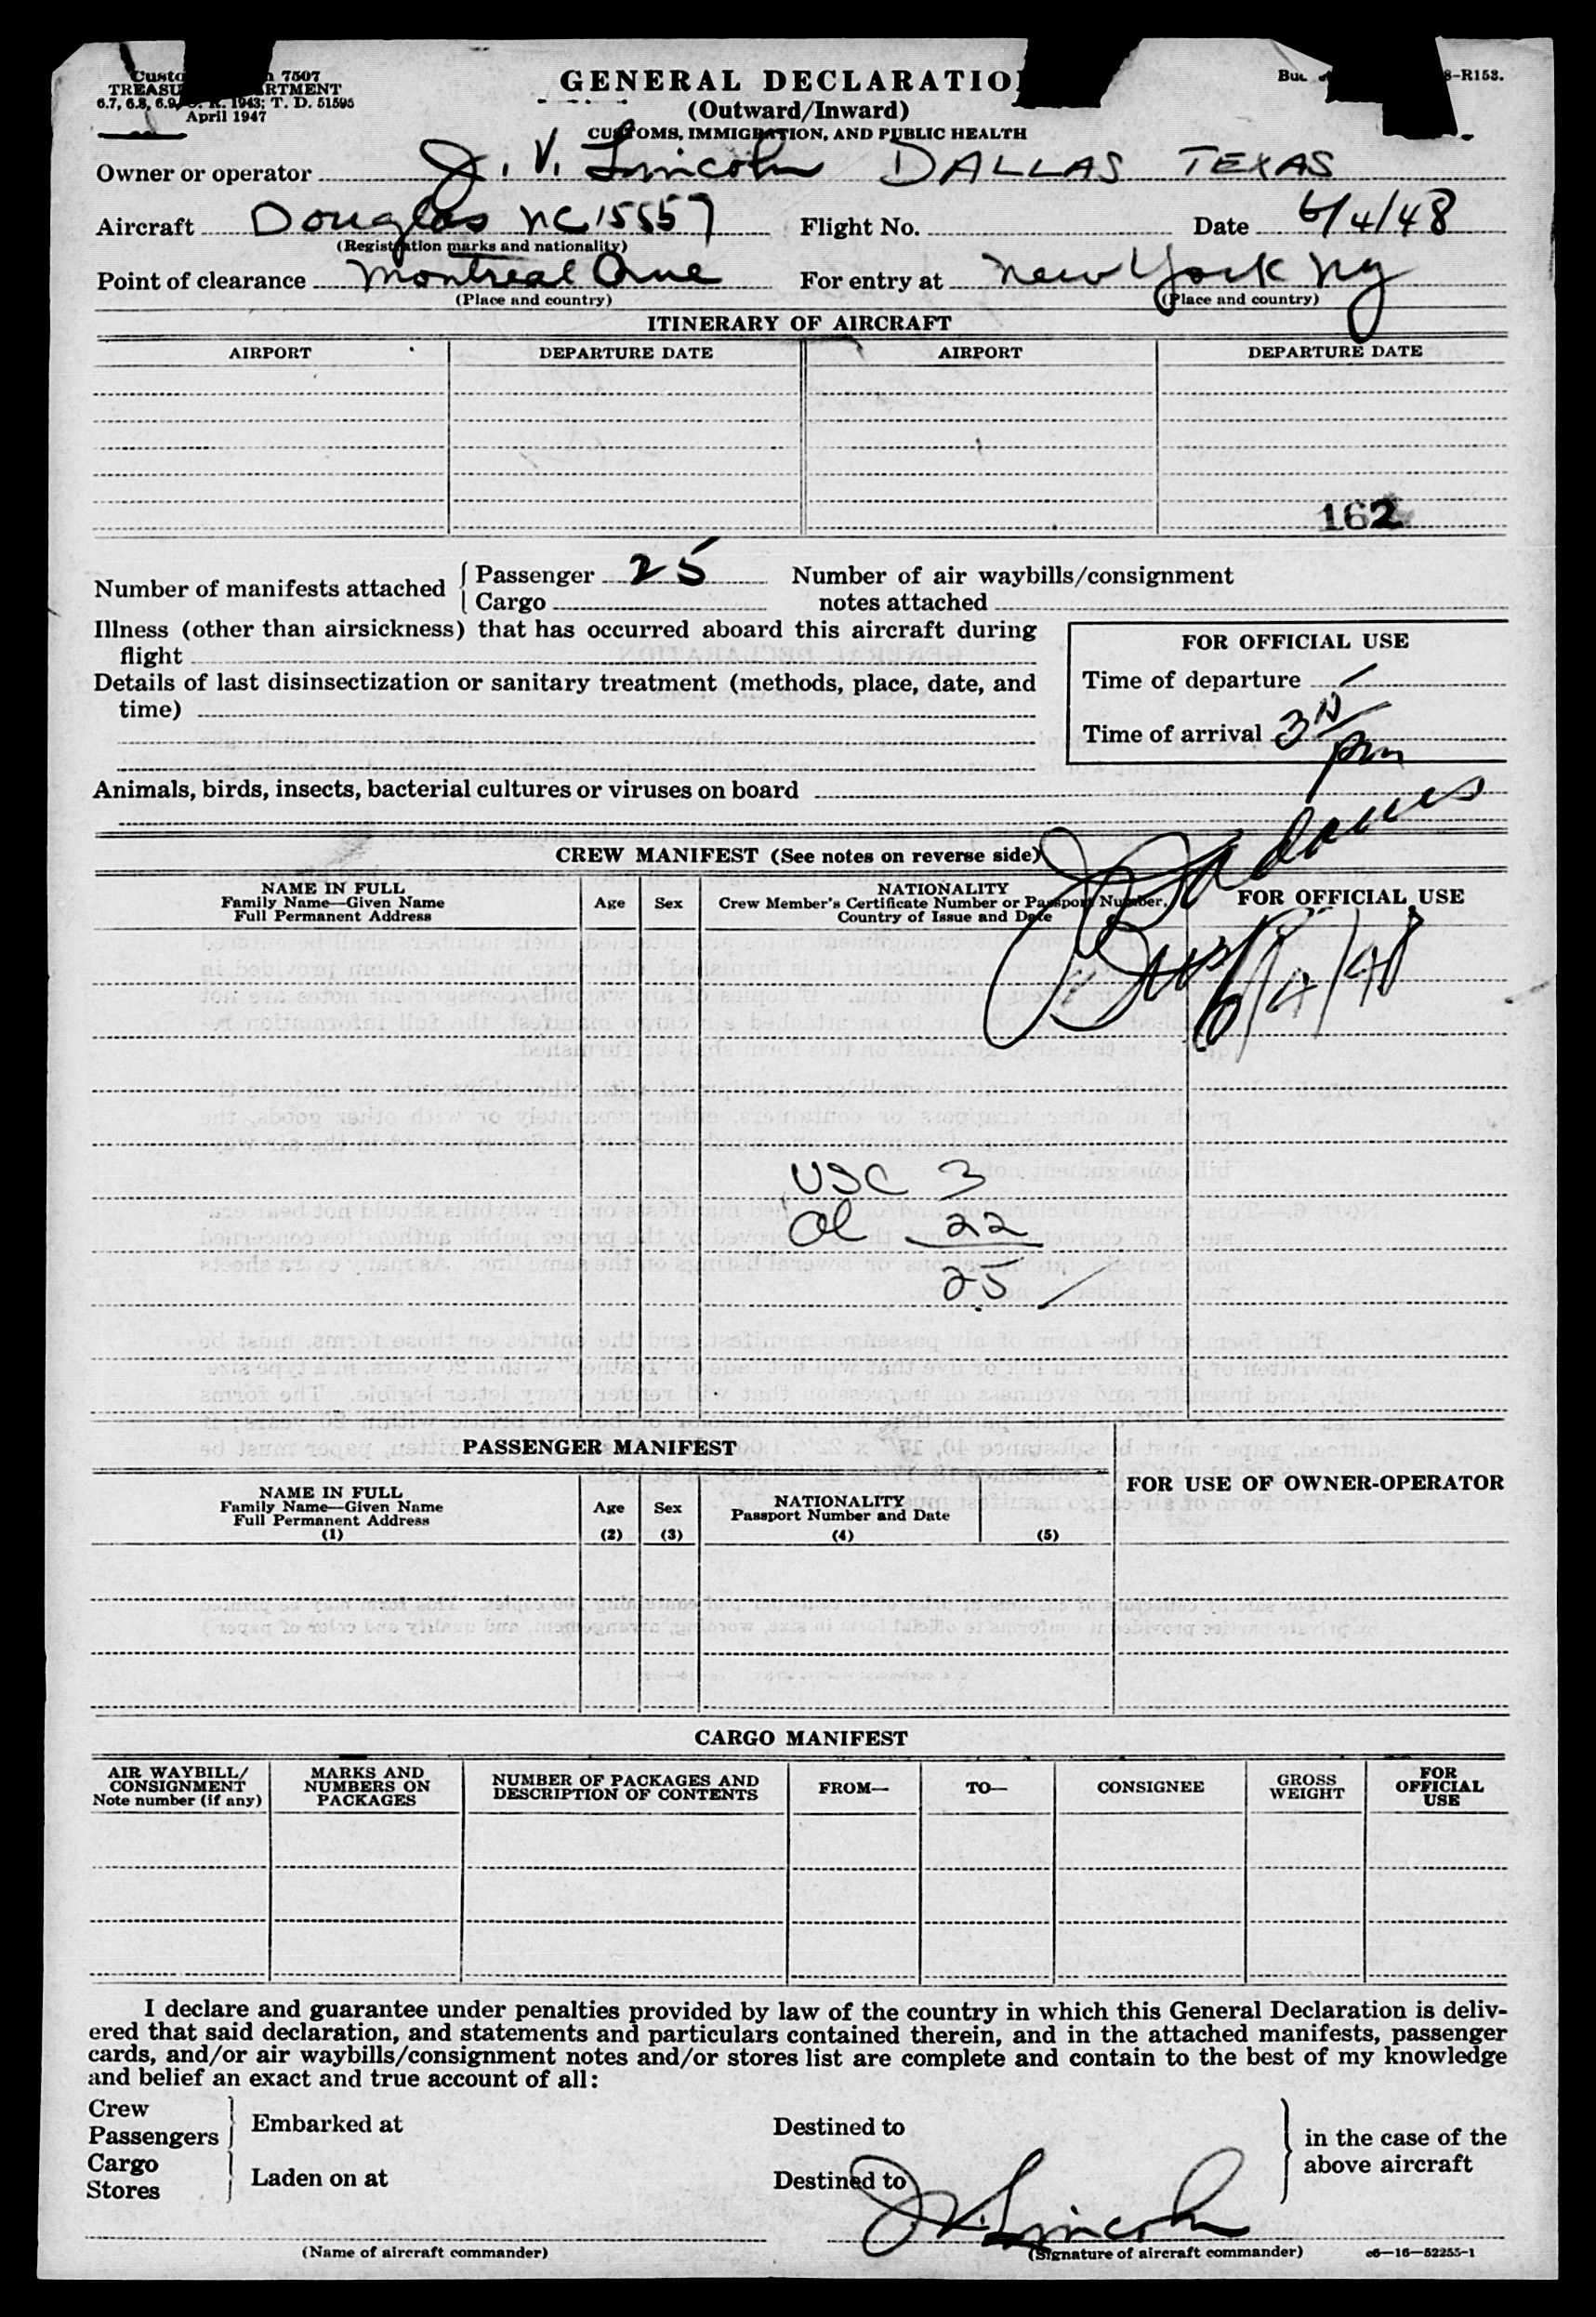 7507
TREASU RTMENT
6.7, 6.8, 6.9, 1943; T. D. 51595
April 1947
GENERAL DECLARATIO
(Outward/Inward)
CUSTOMS, IMMIGRATION, AND PUBLIC HEALTH
-R153.
Owner or operator J. V. Lincoln DALLAS TEXAS
Aircraft Douglas NC15557 Flight No. Date 6/4/48
(Registration marks and nationality)
Point of clearance Montreal Que For entry at New York NY
(Place and country) (Place and country)
ITINERARY OF AIRCRAFT
AIRPORT DEPARTURE DATE AIRPORT DEPARTURE DATE
162
Number of manifests attached { Passenger 25 Number of air waybills/consignment
Cargo notes attached
Illness (other than airsickness) that has occurred aboard this aircraft during
flight
Details of last disinsectization or sanitary treatment (methods, place, date, and
time)
FOR OFFICIAL USE
Time of departure
Time of arrival 3 pm
Animals, birds, insects, bacterial cultures or viruses on board
Adams
CREW MANIFEST (See notes on reverse side)
NAME IN FULL
Family Name—Given Name
Full Permanent Address
Age Sex
NATIONALITY
Crew Member's Certificate Number or Passport Number,
Country of Issue and Date
FOR OFFICIAL USE
6/4/48
USC 3
Al 22
25
PASSENGER MANIFEST
FOR USE OF OWNER-OPERATOR
NAME IN FULL
Family Name—Given Name
Full Permanent Address
(1)
Age
(2)
Sex
(3)
NATIONALITY
Passport Number and Date
(4) (5)
CARGO MANIFEST
AIR WAYBILL/
CONSIGNMENT
Note number (if any)
MARKS AND
NUMBERS ON
PACKAGES
NUMBER OF PACKAGES AND
DESCRIPTION OF CONTENTS
FROM— TO— CONSIGNEE
GROSS
WEIGHT
FOR
OFFICIAL
USE
I declare and guarantee under penalties provided by law of the country in which this General Declaration is deliv-
ered that said declaration, and statements and particulars contained therein, and in the attached manifests, passenger
cards, and/or air waybills/consignment notes and/or stores list are complete and contain to the best of my knowledge
and belief an exact and true account of all:
Crew
Passengers } Embarked at Destined to
Cargo
Stores } Laden on at Destined to
in the case of the
above aircraft
J V Lincoln
(Name of aircraft commander) (Signature of aircraft commander) c6—16—52255-1